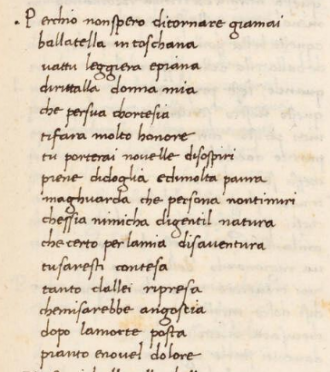 Perchio nonspero ditornare giamai
ballatella in toschana
vattu leggiera epiana
dirittalla donna mia
che persua chortesia
tifara molto honore
tu porterai novelle disospiri
piene didoglia edimolta paura
maghuarda che persona nontimiri
chessia nimicha digentil natura
che certo perlamia disaventura
tusaresti contesa
tanto dallei ripresa
chemisarebbe angoscia
dopo lamorte posta
pianto enovel dolore